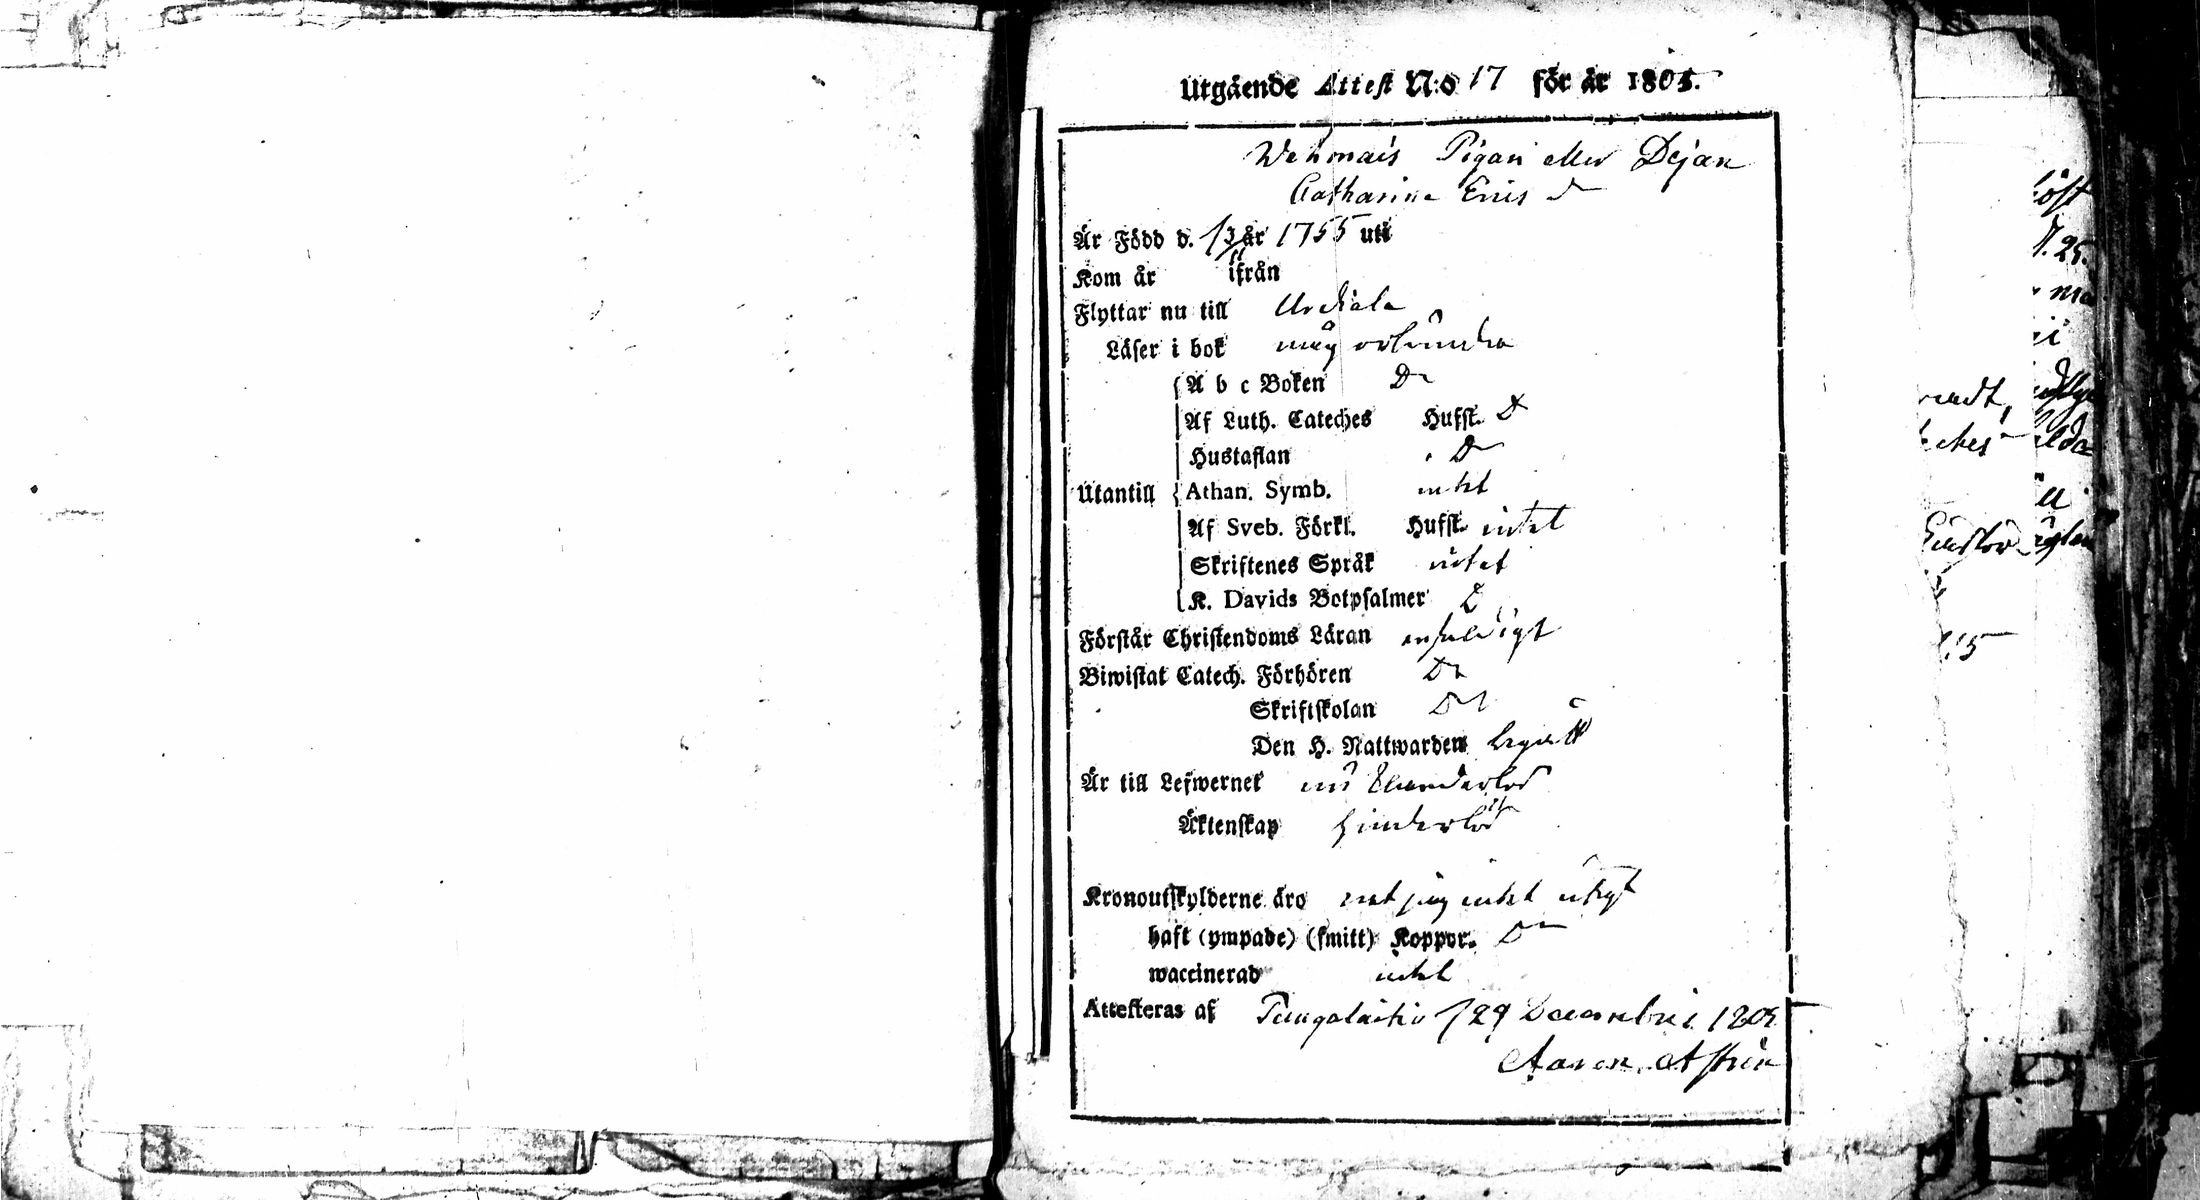 Utgående Attest N:o 17 för år 1805.
Wahonais Pigan eller Dejan
Catharina Erics D
Är Född d. 13/11 år 1755 uti
Kom år ifrån
Flyttar nu till Urdiala
Läser i bok
A b c Boken D
Af Luth. Cateches Hufst. D
Hustaflan D
Utantill Athan. Symb. intet
Af Sveb. Förkl. Hufst. intet
Skriftenes Språk intet
K. Davids Botpsalmer D
Förstår Christendoms Läran enfaldigt
Biwistat Catech. Förhören D
Skriftskolan D
Den H. Nattwarden begått
Är till Lefwernet
Äktenskap hinderlös
Kronoutskylderne äro vet jag intet
haft (ympade) (smitt) Koppor. D
waccinerad intet
Attesteras af Pungalaitio 29 Decembris 1805